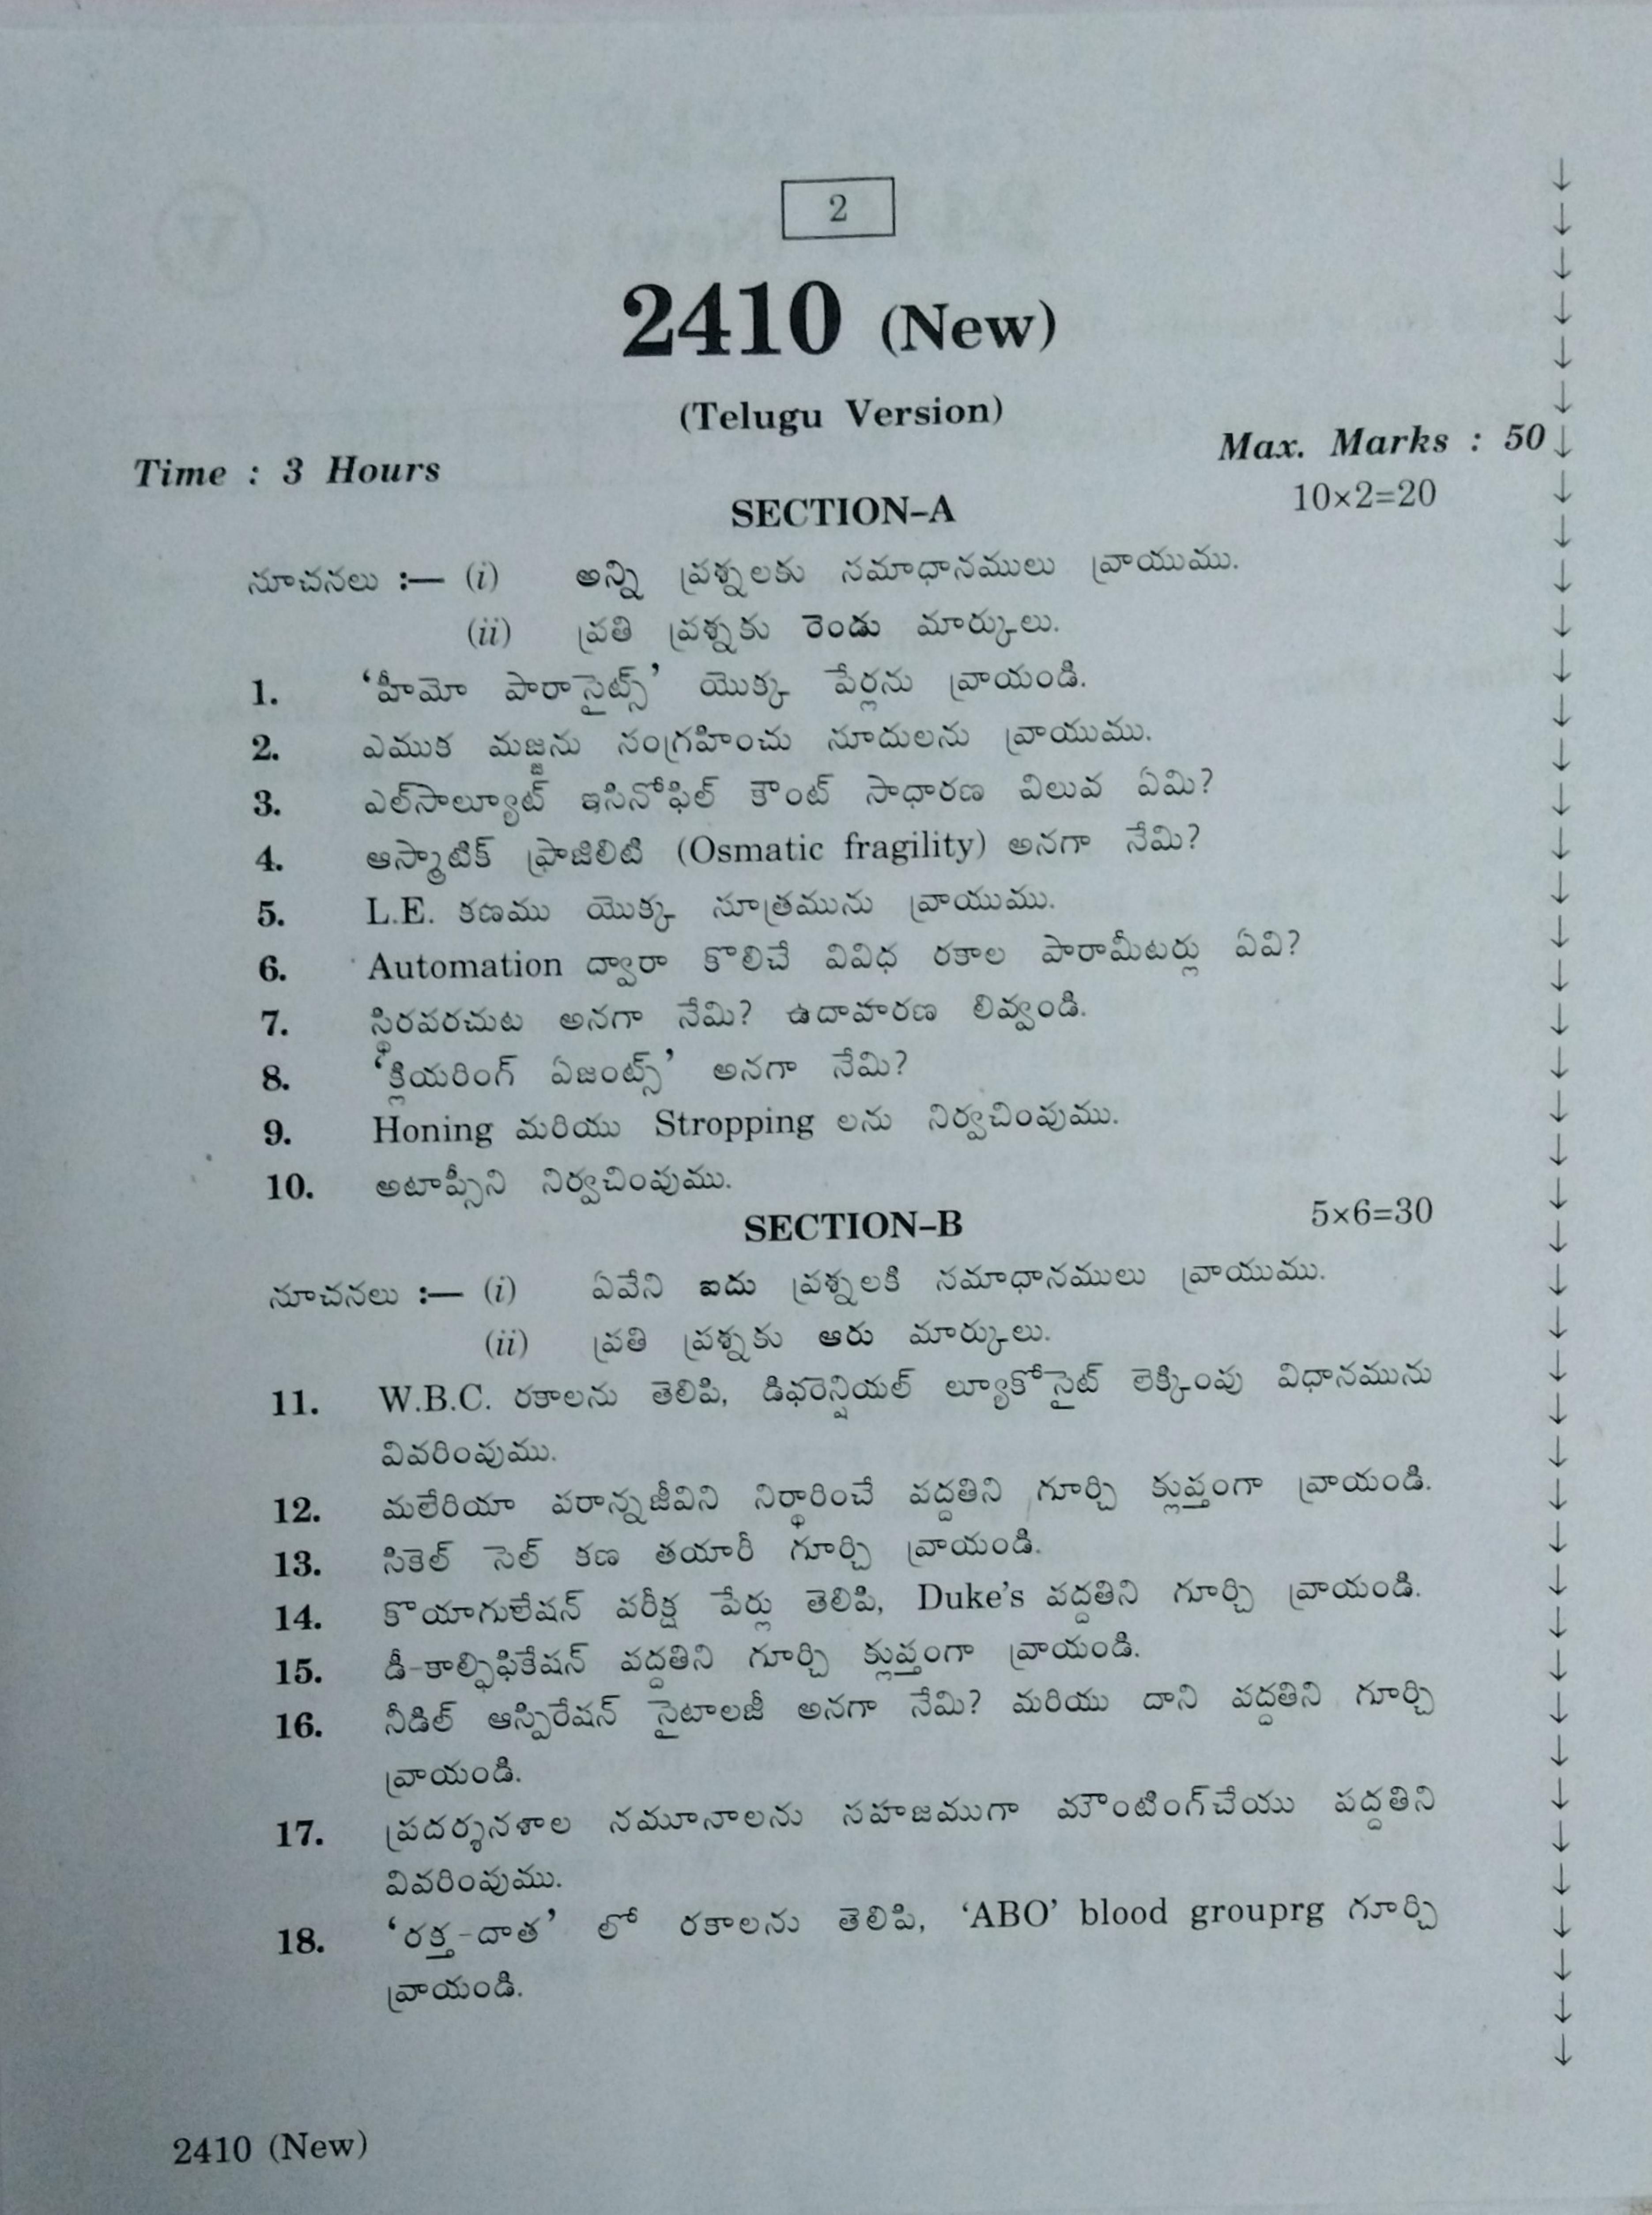 2
2410 (New)
(Telugu Version)
Time : 3 Hours
Max. Marks : 50
SECTION–A
10×2=20
సూచనలు :— (i) అన్ని ప్రశ్నలకు సమాధానములు వ్రాయుము.
(ii) ప్రతి ప్రశ్నకు రెండు మార్కులు.
1. ‘హీమో పారాసైట్స్’ యొక్క పేర్లను వ్రాయండి.
2. ఎముక మజ్జను సంగ్రహించు సూదులను వ్రాయుము.
3. ఎల్‌సాల్యూట్ ఇసినోఫిల్ కౌంట్ సాధారణ విలువ ఏమి?
4. ఆస్మాటిక్ ఫ్రాజిలిటి (Osmatic fragility) అనగా నేమి?
5. L.E. కణము యొక్క సూత్రమును వ్రాయుము.
6. Automation ద్వారా కొలిచే వివిధ రకాల పారామీటర్లు ఏవి?
7. స్థిరపరచుట అనగా నేమి? ఉదాహరణ లివ్వండి.
8. ‘క్లియరింగ్ ఏజంట్స్’ అనగా నేమి?
9. Honing మరియు Stropping లను నిర్వచింపుము.
10. అటాప్సీని నిర్వచింపుము.
SECTION–B
5×6=30
సూచనలు :— (i) ఏవేని ఐదు ప్రశ్నలకి సమాధానములు వ్రాయుము.
(ii) ప్రతి ప్రశ్నకు ఆరు మార్కులు.
11. W.B.C. రకాలను తెలిపి, డిఫరెన్షియల్ ల్యూకోసైట్ లెక్కింపు విధానమును
వివరింపుము.
12. మలేరియా పరాన్నజీవిని నిర్థారించే పద్దతిని గూర్చి క్లుప్తంగా వ్రాయండి.
13. సికెల్ సెల్ కణ తయారీ గూర్చి వ్రాయండి.
14. కొయాగులేషన్ పరీక్ష పేర్లు తెలిపి, Duke’s పద్దతిని గూర్చి వ్రాయండి.
15. డీ-కాల్సిఫికేషన్ పద్దతిని గూర్చి క్లుప్తంగా వ్రాయండి.
16. నీడిల్ ఆస్పిరేషన్ సైటాలజీ అనగా నేమి? మరియు దాని పద్దతిని గూర్చి
వ్రాయండి.
17. ప్రదర్శనశాల నమూనాలను సహజముగా మౌంటింగ్‌చేయు పద్దతిని
వివరింపుము.
18. ‘రక్త-దాత’ లో రకాలను తెలిపి, ‘ABO’ blood grouprg గూర్చి
వ్రాయండి.
2410 (New)